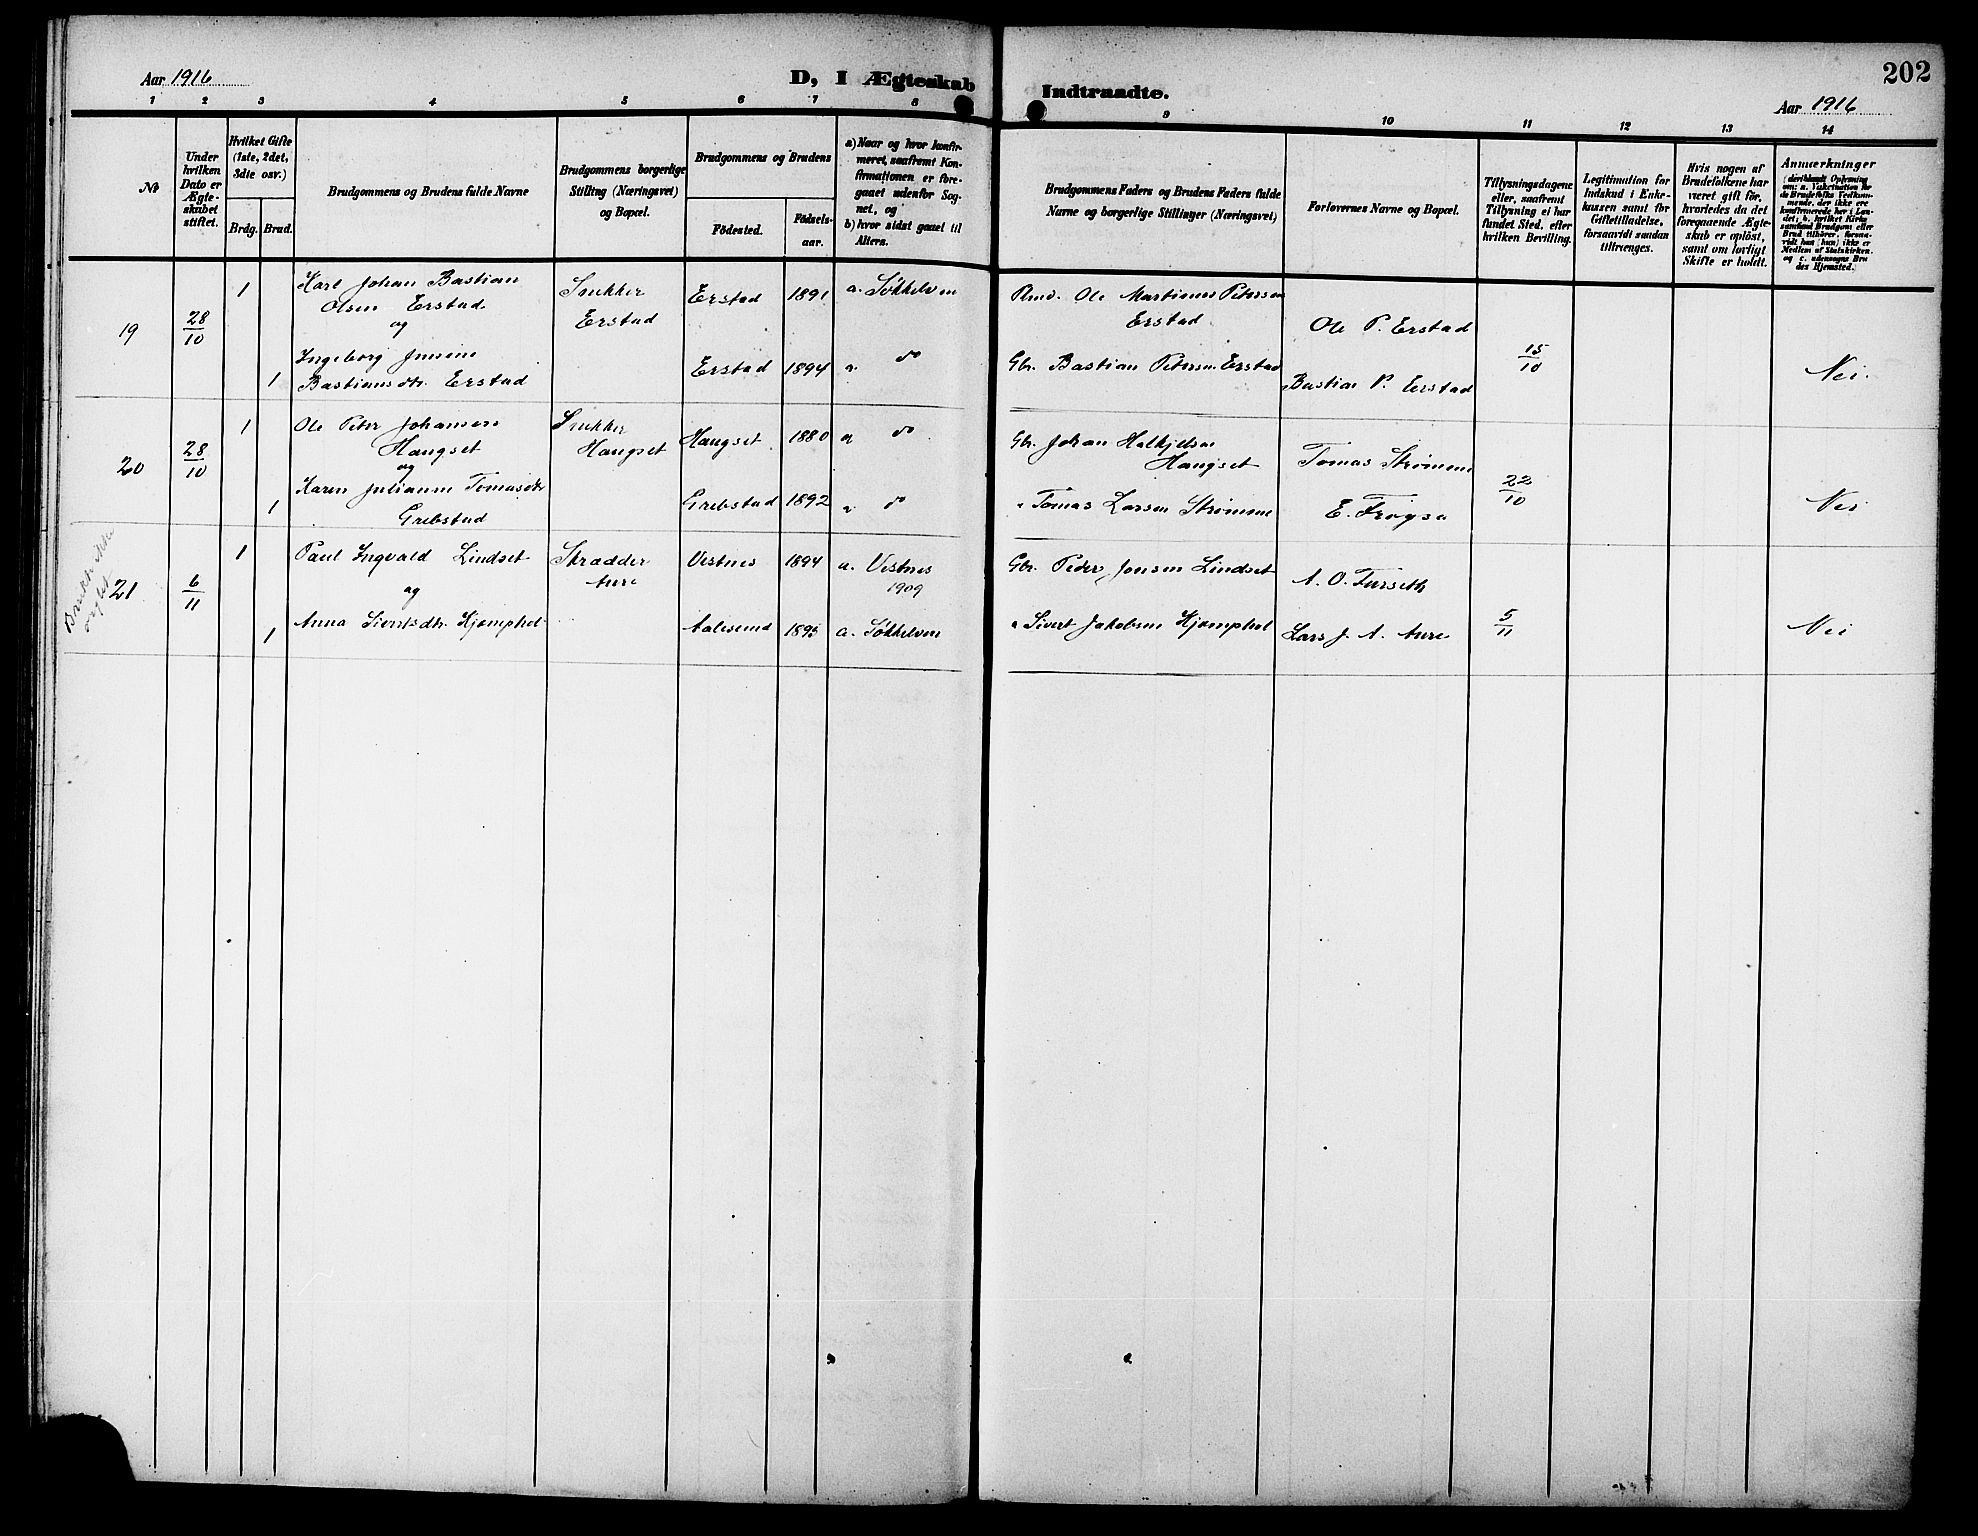 202
Aar 1916
D, I Ægteskab
Indtraadte.
Aar 1916
1 2 3 4 5 6 7 8
9 10 11 12 13 14
No
Under hvilken Dato er Ægteskabet stiftet.
Hvilket Gifte (1ste, 2det, 3die osv.)
Brdg. Brud.
Brudgommens og Brudens fulde Navne
Brudgommens borgerlige Stilling (Næringsvei) og Bopæl.
Brudgommens og Brudens
Födested.
Födsels-aar.
a) Naar og hvor konfirmeret, saafremt Konfirmationen er foregaaet udenfor Sognet, og
b) hvor sidst gaaet til Alters.
Brudgommens Faders og Brudens Faders fulde Navne og borgerlige Stillinger (Næringsvei)
Forlovernes Navne og Bopæl.
Tillysningsdagene eller, saafremt Tillysning ei har fundet Sted, efter hvilken Bevilling.
Legitimation for Indskud i Enkekassen samt for Giftetilladelse, forsaavidt saadan tiltrænges.
Hvis nogen af Brudefolkene har været gift för, hvorledes da det foregaaende Ægteskab er oplöst, samt om lovligt Skifte er holdt.
Anmærkninger
19 28/10 1 Karl Johan Bastian Olsen Erstad
og
Snekker Erstad
Erstad 1891 a. Søkkelven
Ole Martinus Petersen Erstad
Ole P. Erstad
15/10
1 Ingeborg Bastiansdtr. Erstad
Erstad 1894 a. do
Gbr. Bastian Petersen Erstad
Bastian P. Erstad
Nei.
20 28/10 1 Ole Peter Johansen Haugset
og
Snekker Haugset
Haugset 1880 a do
Gbr. Johan Haugset
Tomas Strømme
22/10
1 Karen Julianne Tomasdtr Grebstad
Grebstad 1892 a. do
" Tomas Larsen Strømme
E. Frøysa
Nei
21 6/11 1 Paul Ingvald Lindset
og
Skrædder Aure
Vestnes 1894 a. Vestnes 1909
Gbr. Peder Jonsen Lindset
A. O. Furseth
5/11
1 Anna Sivertsdtr. Hjomphol
Aalesund 1895 a. Søkkelven
" Sivert Jakobsen Hjomphol
Lars J. A. Aure
Nei